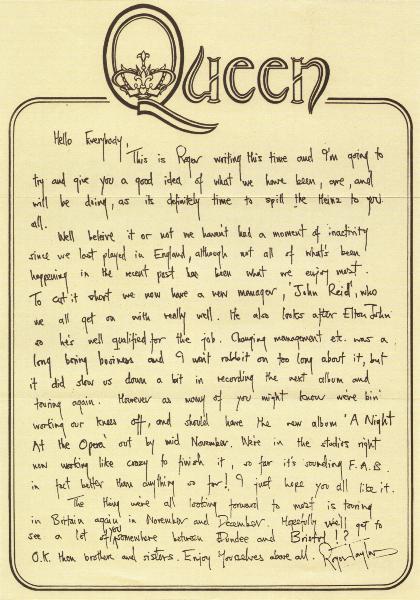 Queen
Hello Everybody,
This is Roger writing this time and I'm going to
try and give you a good idea of what we have been, are, and
will be doing, as its definitely time to spill the Heinz to you
all.
Well beleive it or not we havent had a moment of inactivity
since we last played in England, although not all of what's been
happening in the recent past has been what we enjoy most.
To cut it short we now have a new manager, 'John Reid', who
we all get on with really well. He also looks after Elton John
so he's well qualified for the job. Changing management etc. was a
long boring business and I won't rabbit on too long about it, but
it did slow us down a bit in recording the next album and
touring again. However as many of you might know we're bin'
working our knees off, and should have the new album 'A Night
At the Opera' out by mid November. We're in the studios right
now working like crazy to finish it, so far it's sounding F.A.B.
in fact better than anything so far! I just hope you all like it.
The thing we're all looking forward to most is touring
in Britain again in November and December. Hopefully we'll get to
see a lot of you somewhere between Dundee and Bristol!?
O.K. then brothers and sisters. Enjoy Yourselves above all. Roger Taylor